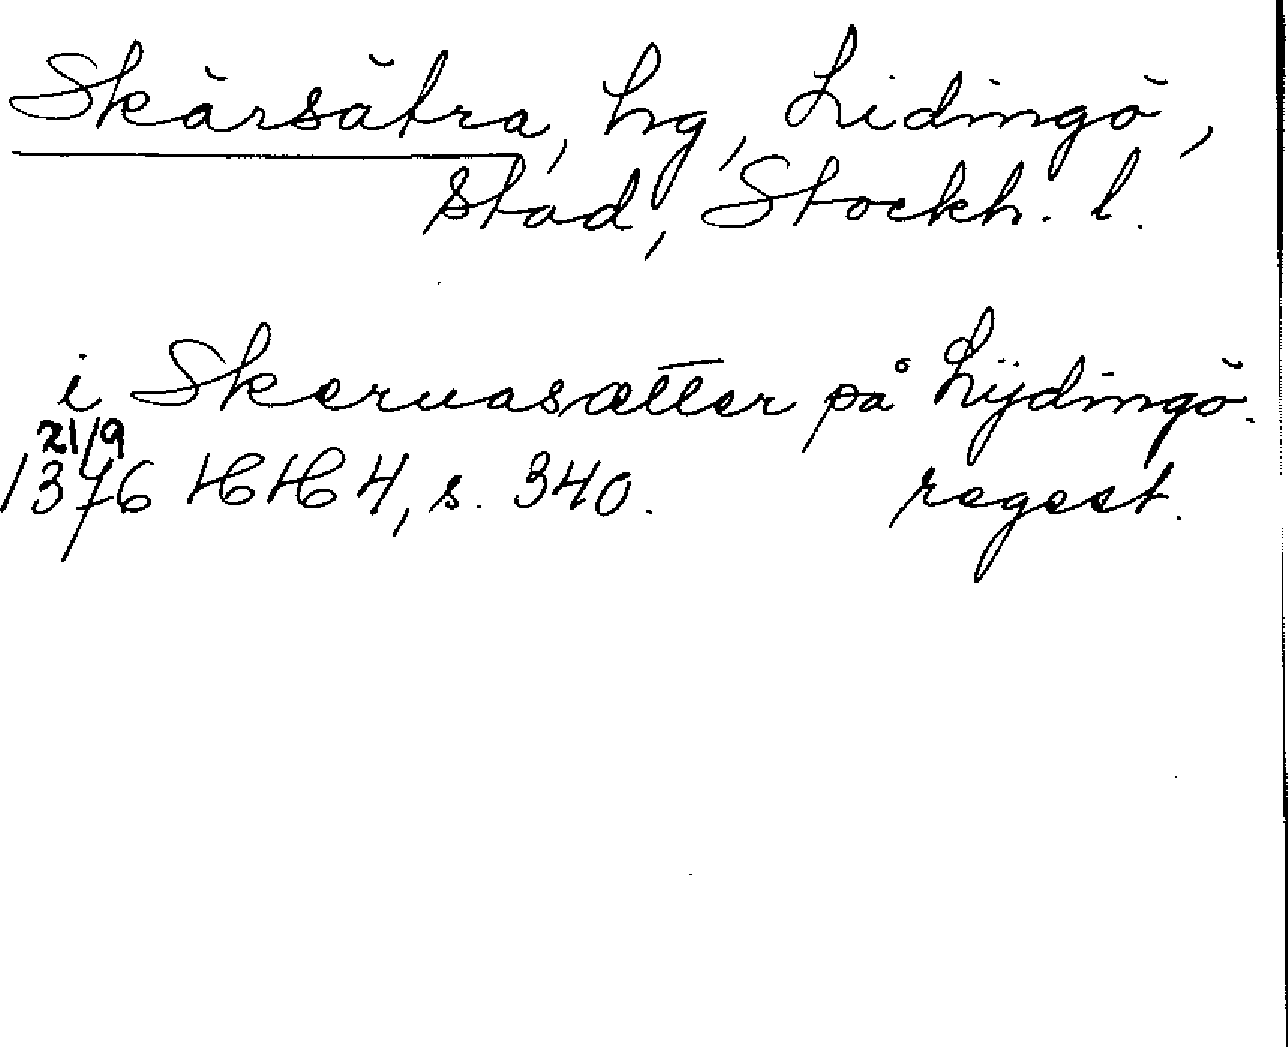 Skärsätra, hg, Lidingö,
stad, Stockh. l.
i Skeruasætter på Lijdingö.
21/9
1376 HH 4, s. 340. regest.